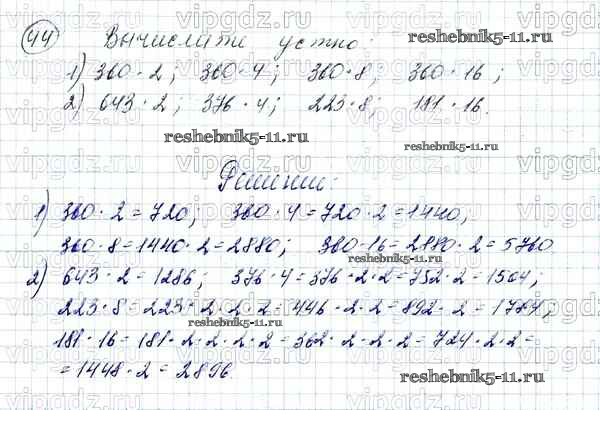 44 Вычислите устно:
1) 360 · 2; 360 · 4; 360 · 8; 360 · 16;
2) 643 · 2; 376 · 4; 223 · 8; 181 · 16.
reshebnik5-11.ru
reshebnik5-11.ru
Решение:
1) 360 · 2 = 720; 360 · 4 = 720 · 2 = 1440;
360 · 8 = 1440 · 2 = 2880; 360 · 16 = 2880 · 2 = 5760
2) 643 · 2 = 1286; 376 · 4 = 376 · 2 · 2 = 752 · 2 = 1504;
223 · 8 = 223 · 2 · 2 · 2 = 446 · 2 · 2 = 892 · 2 = 1784;
reshebnik5-11.ru
181 · 16 = 181 · 2 · 2 · 2 · 2 = 362 · 2 · 2 · 2 = 724 · 2 · 2 =
= 1448 · 2 = 2896.
reshebnik5-11.ru
vipgdz.ru